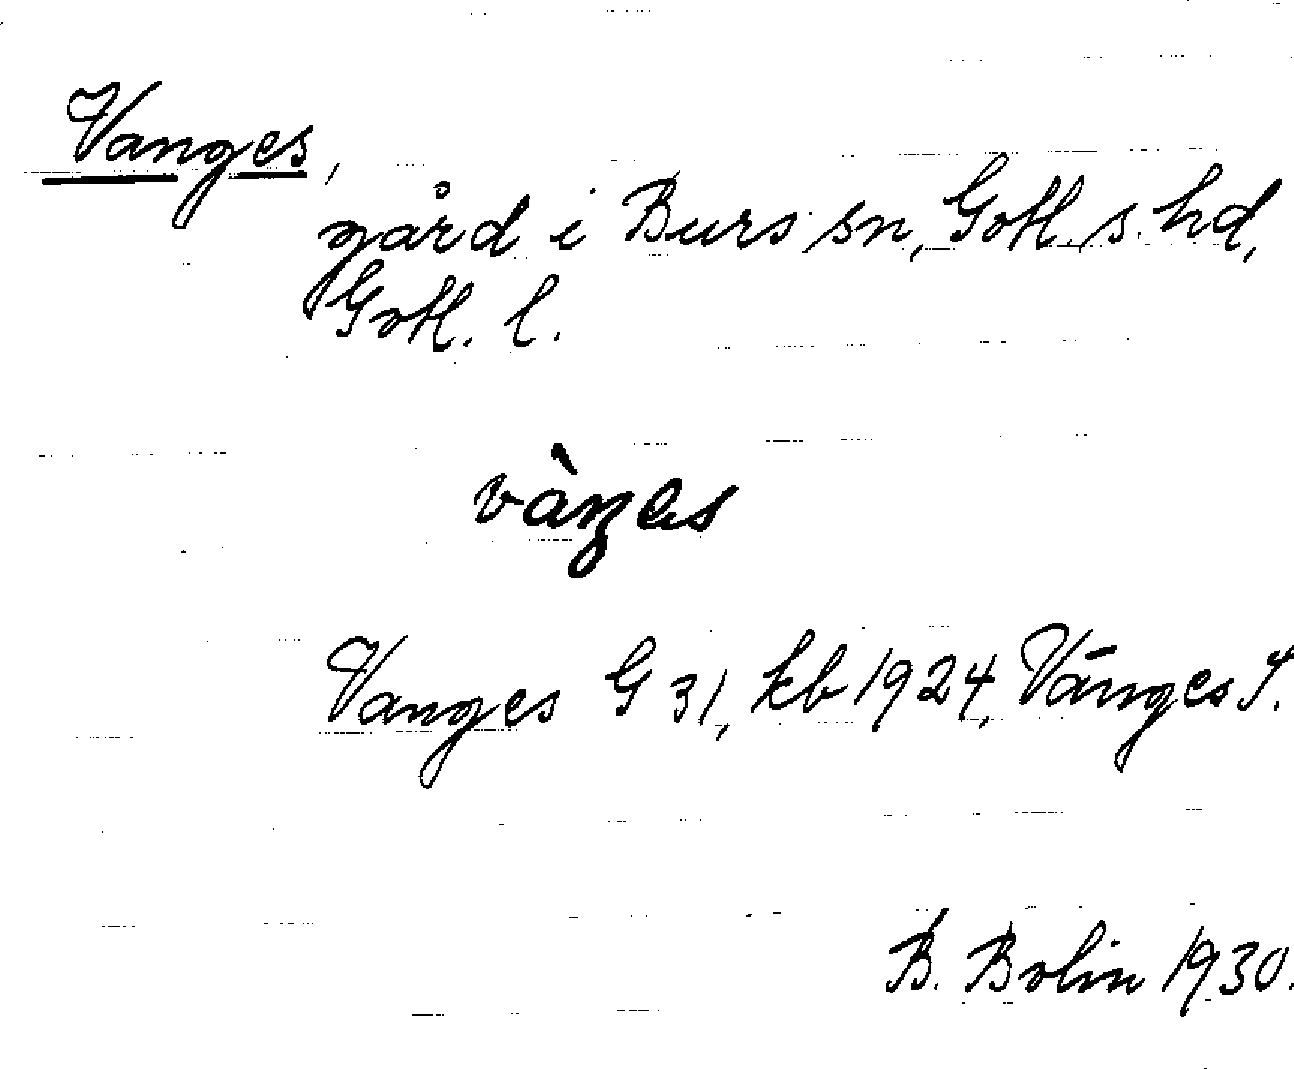 Vanges,
gård i Burs sn, Gotl. s. hd,
Gotl. l.
vàŋes
Vanges G 31, kb 1924, Vānges J.
B. Bolin 1930.